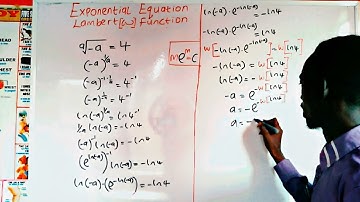 Exponential Equation
Lambert [w] Function
ᵃ√-a = 4
(-a)^1/a = 4
(-a)^1/a ^-1 = 4^-1
(-a)^-1/a = 4^-1
ln(-a)^-1/a = -ln4
1/a ln(-a) = -ln4
(-a)^-1 ln(-a) = -ln4
(e^ln(-a))^-1 ln(-a) = -ln4
ln(-a)·(e^-ln(-a)) = -ln4
me^m = c
ln(-a)·e^-ln(-a) = -ln4
-ln(-a)·e^-ln(-a) = ln4
w[-ln(-a)·e^-ln(-a)] = w[ln4]
-ln(-a) = w[ln4]
ln(-a) = -w[ln4]
-a = e^-w[ln4]
a = -e^-w[ln4]
a = -